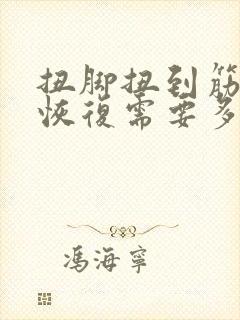 扭脚扭到筋
恢復需要多
馮海寧